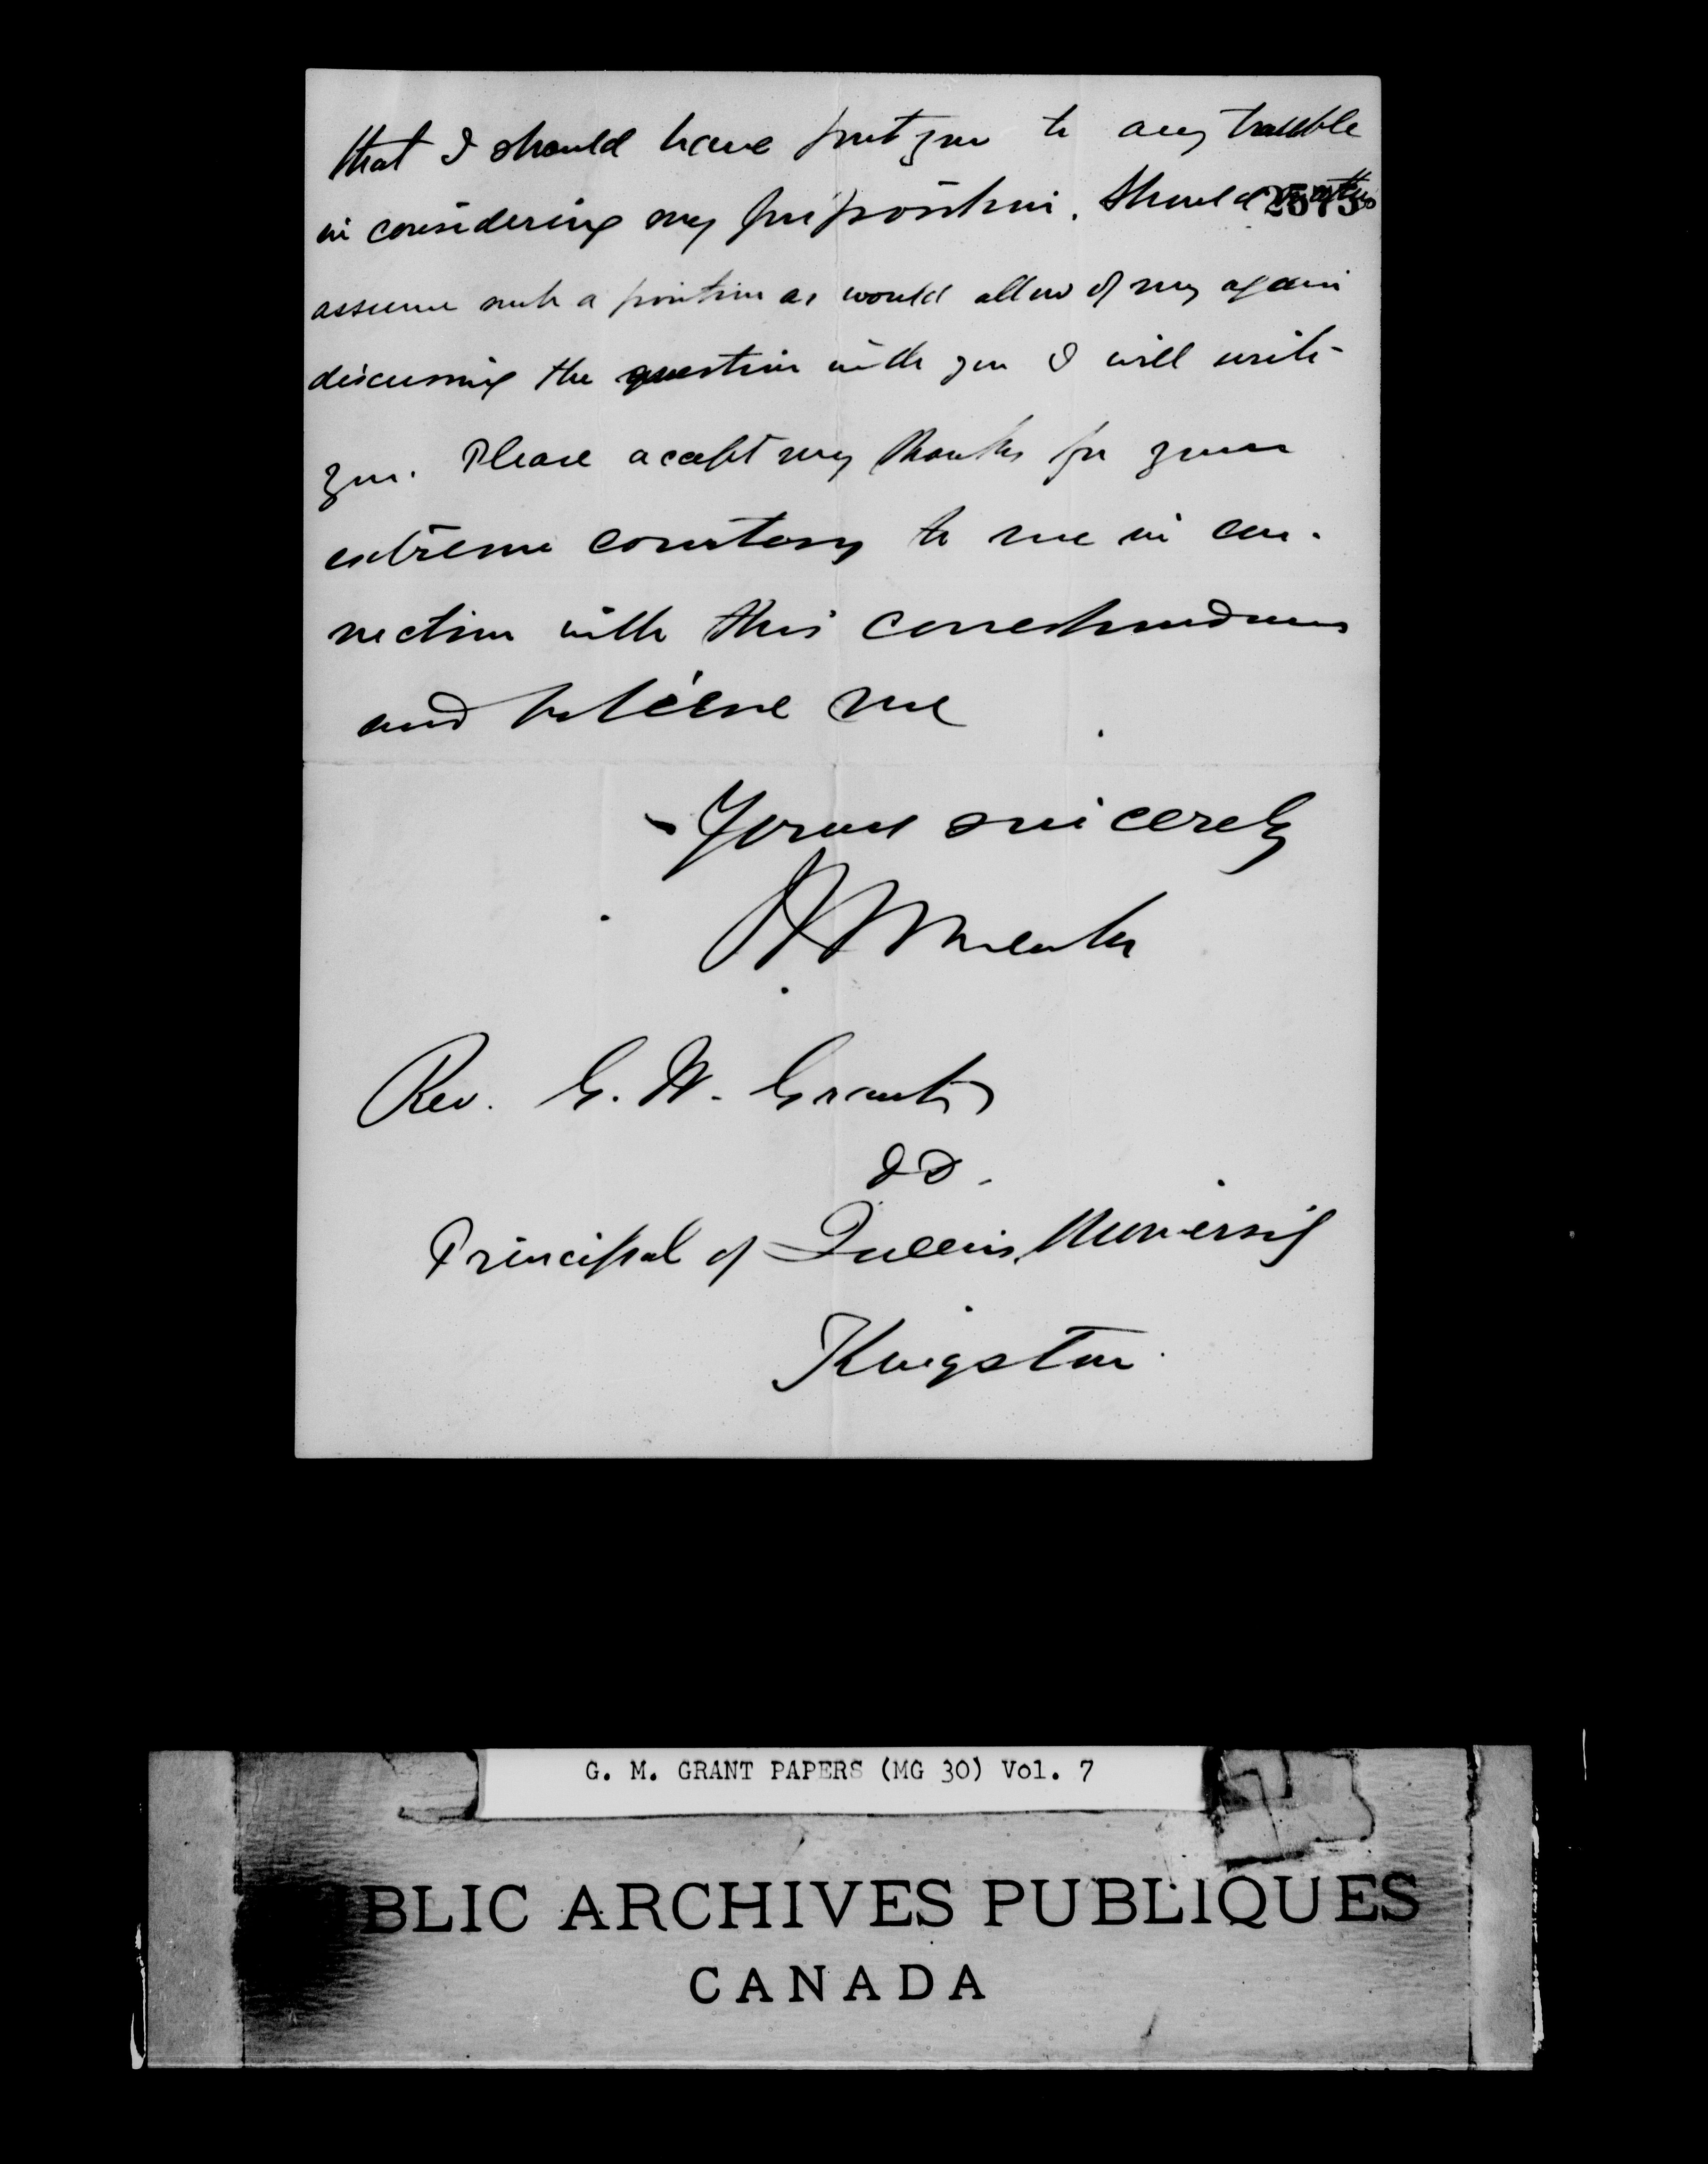 that I should have put you to any trouble
in considering my proposition. Should matters
2573
assume such a position as would allow of my again
discussing the question with you I will write
you. Please accept my thanks for your
extreme courtesy to me in con-
nection with this correspondence
and believe me
Yours sincerely
Rev. G. M. Grant
DD.
Principal of Queen's University
Kingston.
G. M. GRANT PAPERS (MG 30) Vol. 7
BLIC ARCHIVES PUBLIQUES
CANADA